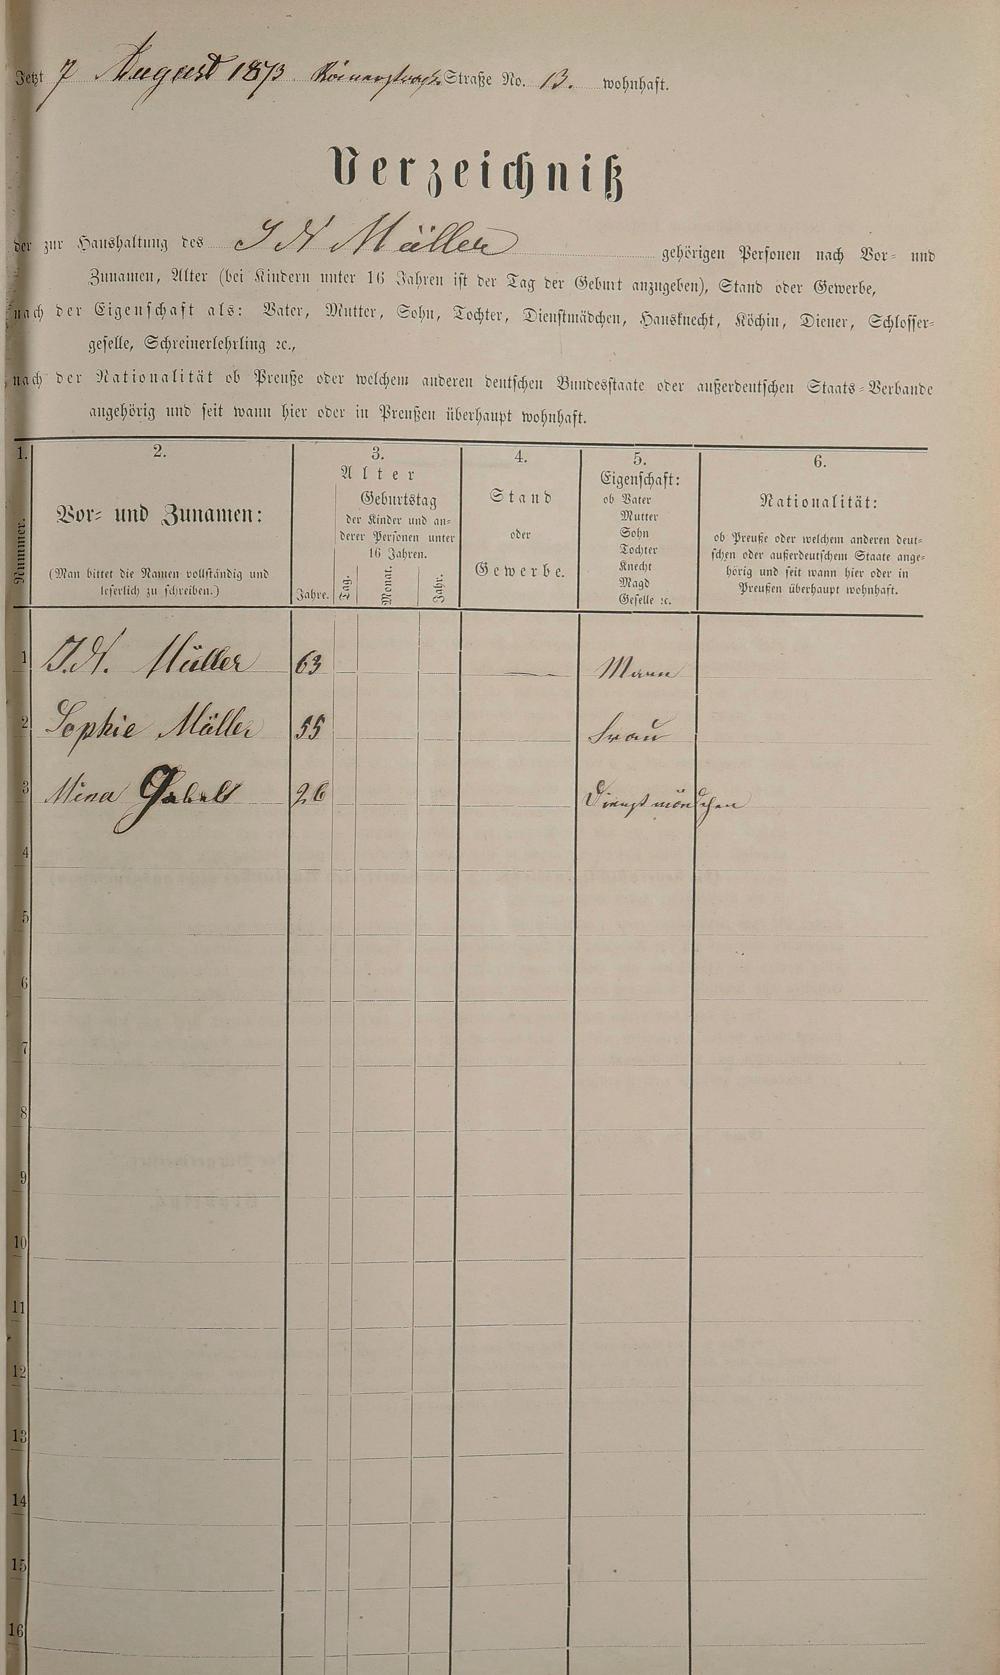 Jetzt 7 August 1873 Straße No. 13. wohnhaft.
Verzeichniß
der zur Haushaltung des J H Müller gehörigen Personen nach Vor- und
Zunamen, Alter (bei Kindern unter 16 Jahren ist der Tag der Geburt anzugeben), Stand oder Gewerbe,
nach der Eigenschaft als: Vater, Mutter, Sohn, Tochter, Dienstmädchen, Hausknecht, Köchin, Diener, Schlosser-
geselle, Schreinerlehrling ꝛc.,
nach der Nationalität ob Preuße oder welchem anderen deutschen Bundesstaate oder außerdeutschen Staats-Verbande
angehörig und seit wann hier oder in Preußen überhaupt wohnhaft.
1.
Nummer.
2.
Vor- und Zunamen:
(Man bittet die Namen vollständig und
leserlich zu schreiben.)
3.
Alter
Geburtstag
der Kinder und an-
derer Personen unter
16 Jahren.
Jahre. Tag. Monat. Jahr.
4.
Stand
oder
Gewerbe.
5.
Eigenschaft:
ob Vater
Mutter
Sohn
Tochter
Knecht
Magd
Geselle ꝛc.
6.
Nationalität:
ob Preuße oder welchem anderen deut-
schen oder außerdeutschem Staate ange-
hörig und seit wann hier oder in
Preußen überhaupt wohnhaft.
1 J. H. Müller 63 — Mann
2 Sophie Müller 55 Frau
3 Mina 26 Dienstmädchen
4
5
6
7
8
9
10
11
12
13
14
15
16